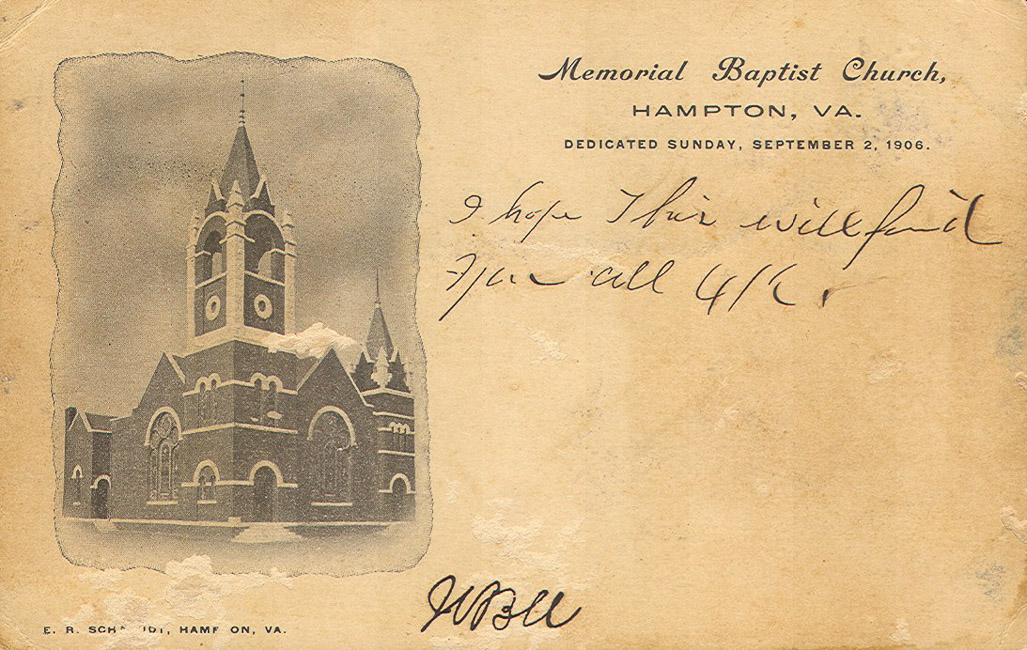 Memorial Baptist Church,
HAMPTON, VA.
DEDICATED SUNDAY, SEPTEMBER 2, 1906.
I hope This will find
you all
E. R. HAMPTON, VA.